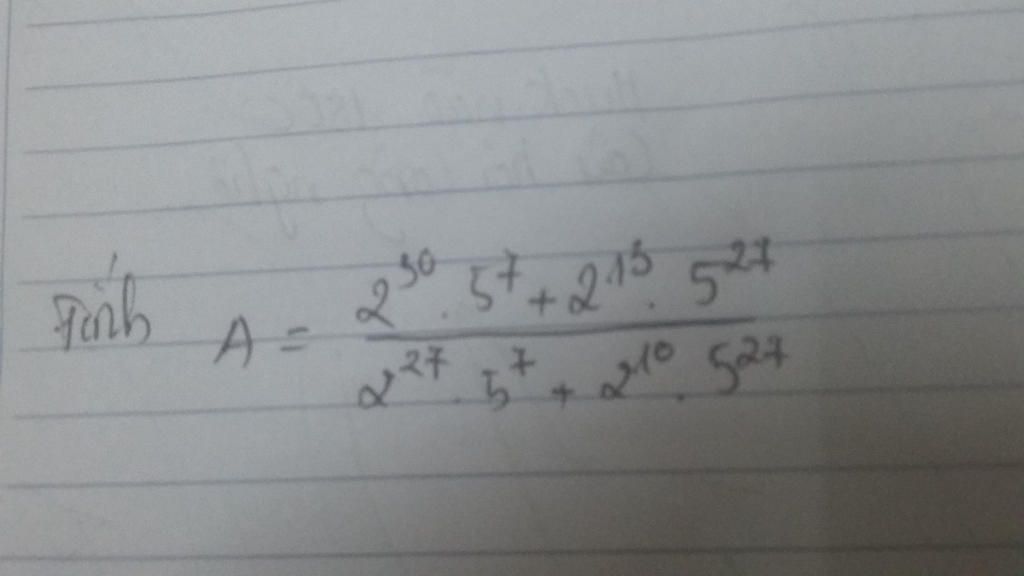 Tính A = \frac{2^{30} . 5^7 + 2^{13} . 5^{27}}{2^{27} . 5^7 + 2^{10} . 5^{27}}